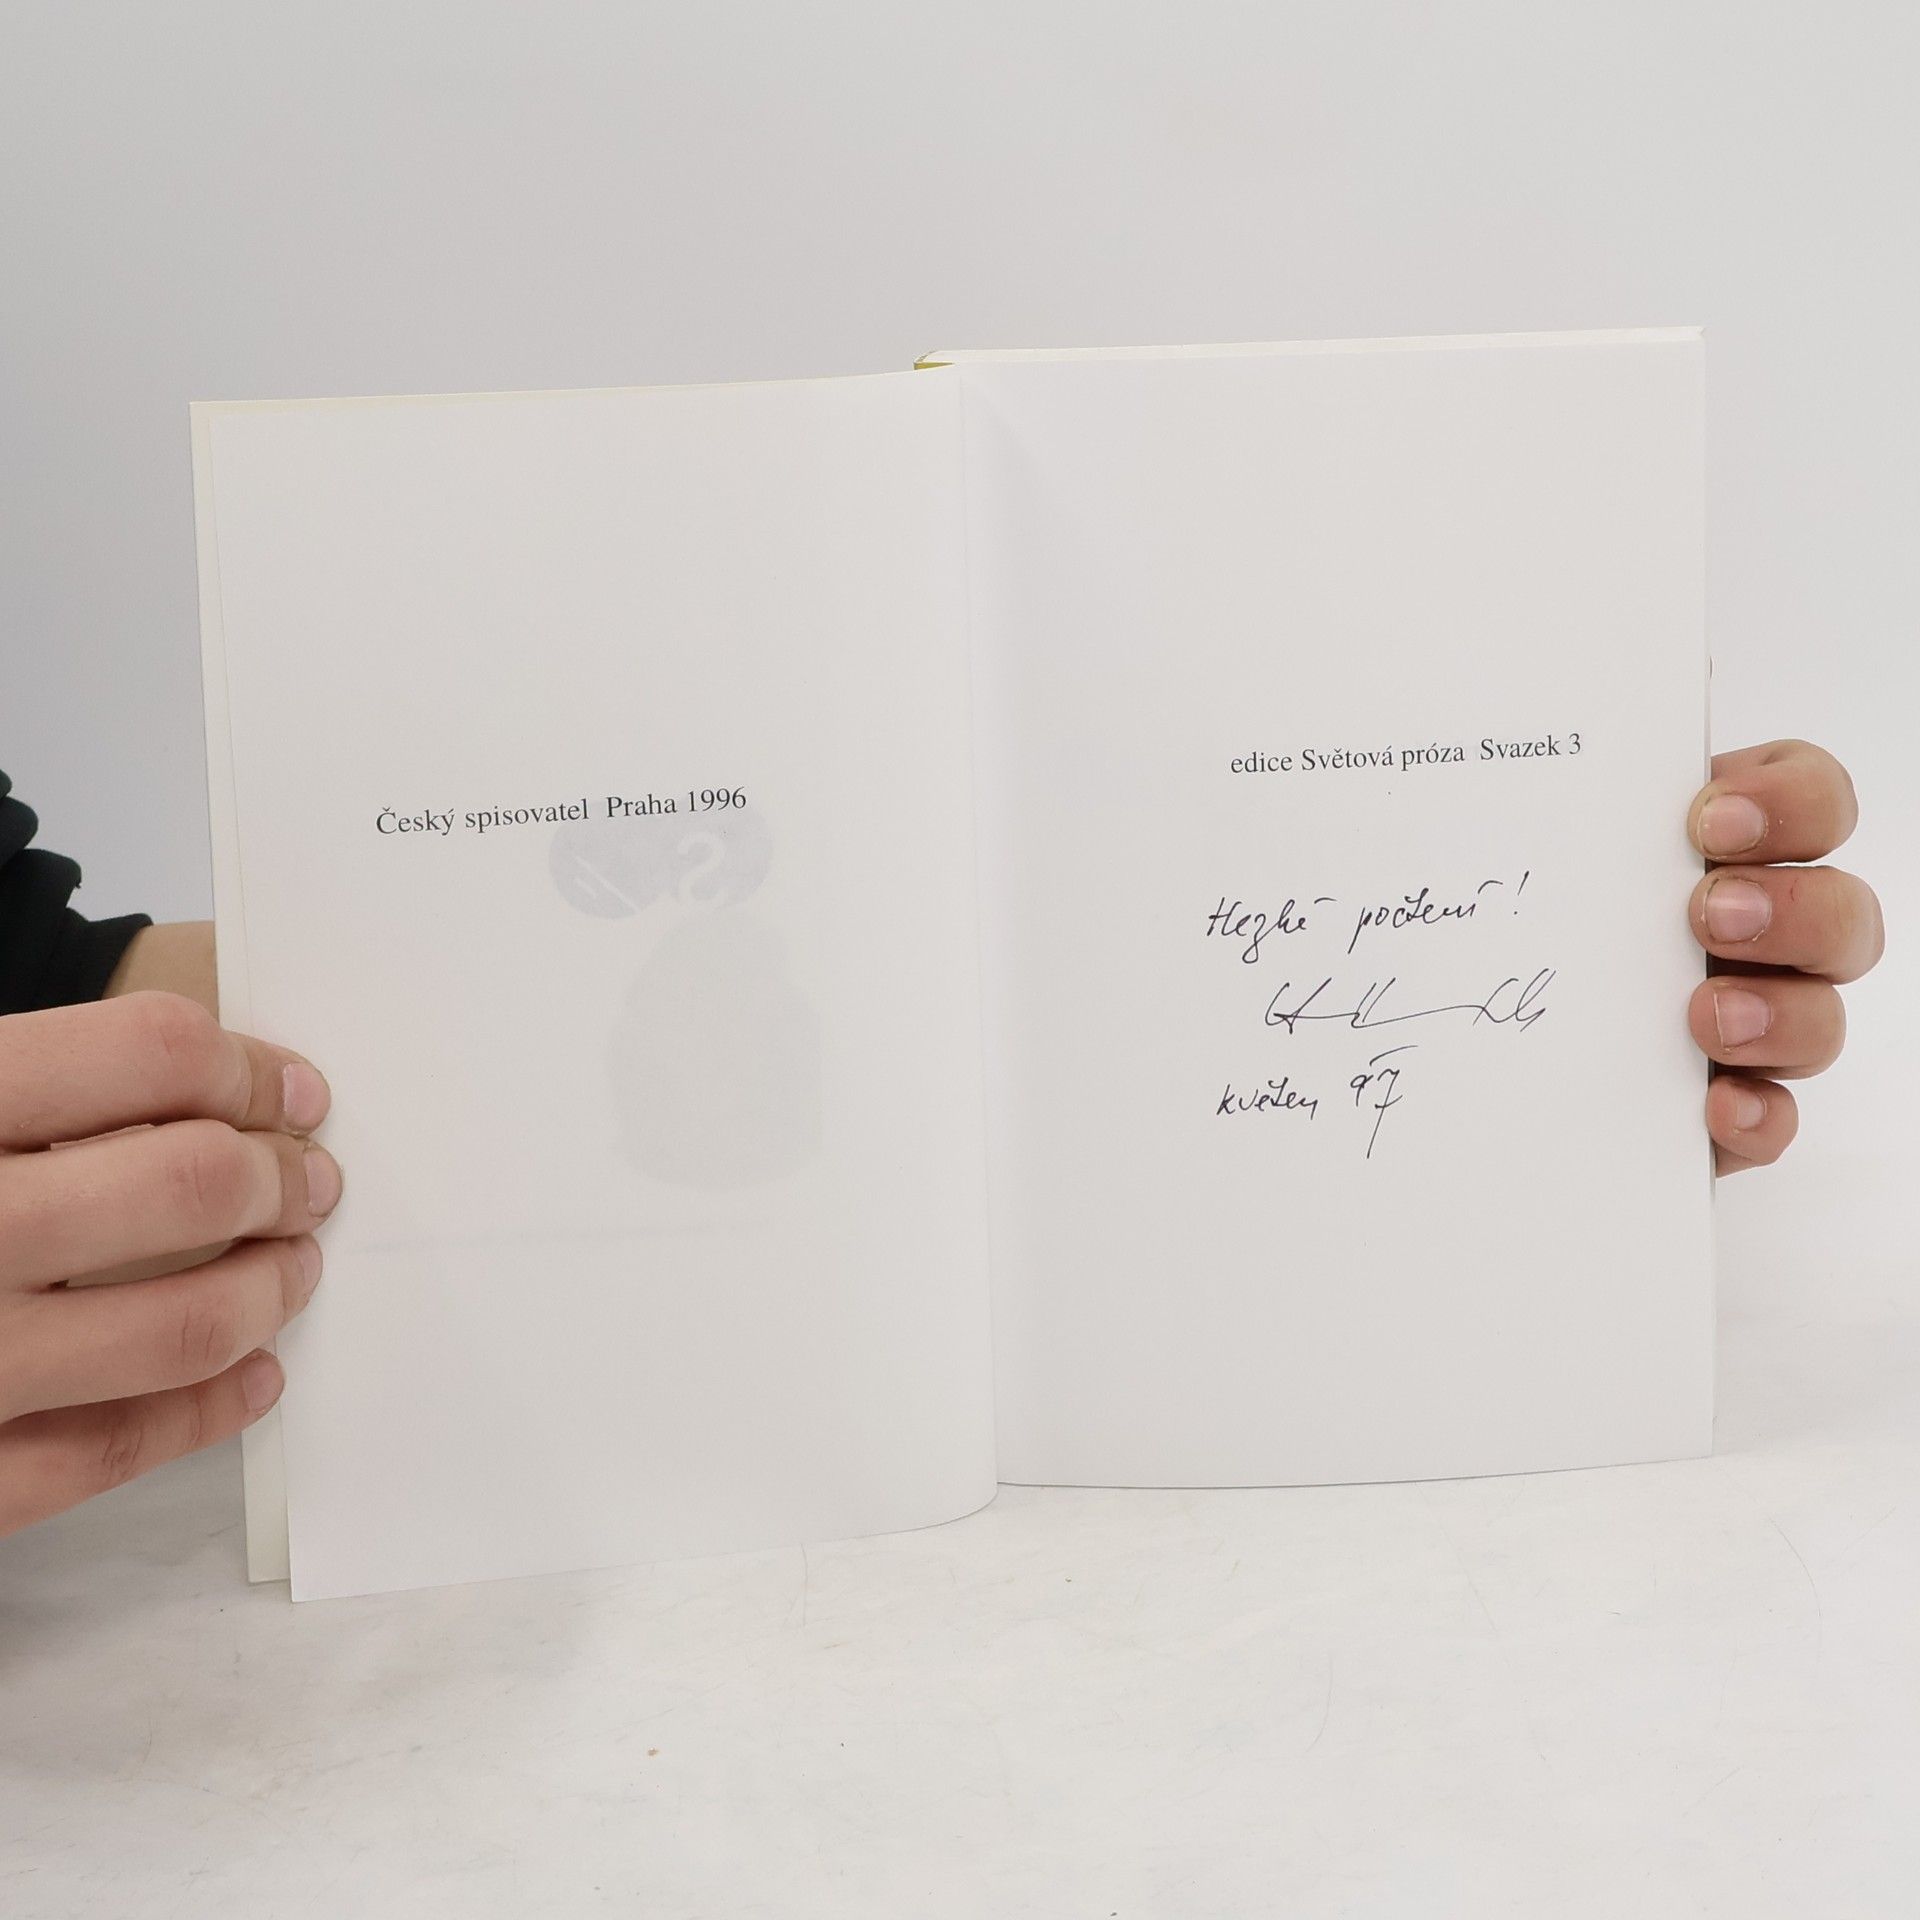 Český spisovatel Praha 1996
edice Světová próza Svazek 3
Hezké počtení!
květen 97